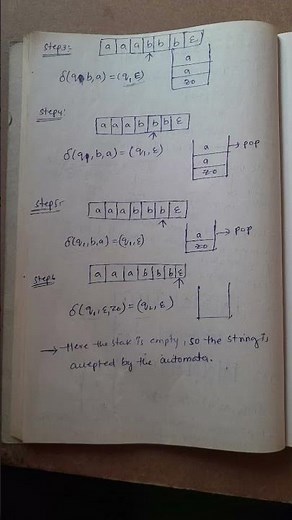 Step3:-
a a a b b b ε
δ(q₁,b,a) = (q₁,ε)
a
a
z₀
Step4:
a a a b b b ε
δ(q₁,b,a) = (q₁,ε)
a → pop
a
z₀
Step5:-
a a a b b b ε
δ(q₁,b,a) = (q₁,ε)
a → pop
z₀
Step6
a a a b b b ε
δ(q₁,ε,z₀) = (q₂,ε)
→ Here the stak is empty, so the string is
accepted by the automata.